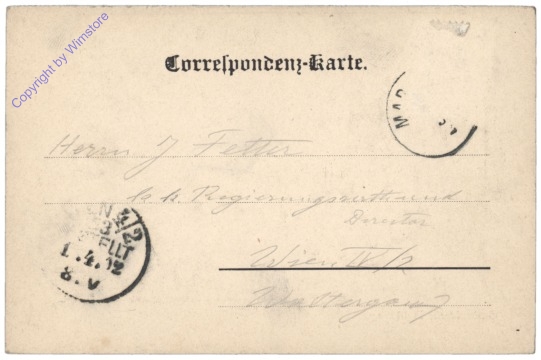 Copyright by Wimstore
Correspondenz-Karte.
Herrn J Fetter
k. k. Regierungsrath und
Director
Wien IV/2
1.4.02
8.V